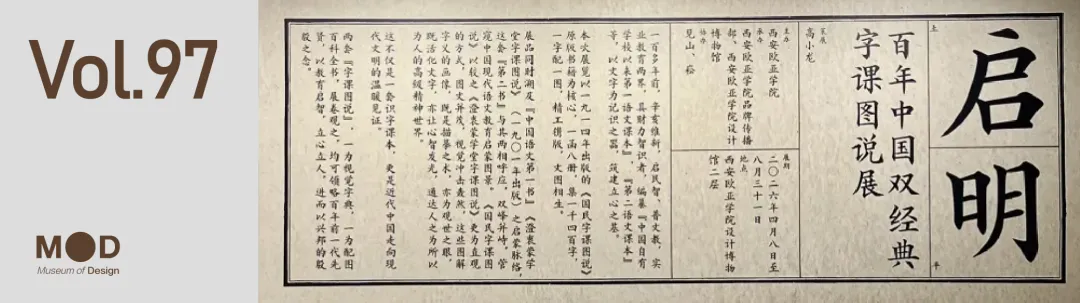 Vol.97
MOD
Museum of Design
启
明
百年中国双经典
字课图说展
策展
高小龙
主办
西安欧亚学院
承办
西安欧亚学院品牌传播
部、西安欧亚学院设计
博物馆
协办
见山、崧
展期
二〇二六年四月八日至
八月三十一日
地点
西安欧亚学院设计博物
馆二层
一百多年前，辛亥维新，启民智、普文教，实
业教育两界，具财力智识者，编纂『中国自有
学校以来第一语文课本』、『第二语文课本』
等，以文字为记识之器，筑建立心之基。
本次展览以一九一四年出版的《国民字课图说》
原版书籍为核心，一函八册，集一千四百字，
一字配一图，精工镌版，文图相生。
展品同时溯及『中国语文第一书』《澄衷蒙学
堂字课图说》（一九〇一年出版）之启蒙脉络，
这套『第二书』与其两相呼应，双峰并峙，管
窥中国现代语文教育启蒙图景。《国民字课图
说》以较之《澄衷蒙学堂字课图说》更为直观
的方式，图文并茂，视觉冲击轰然，这些图解
字义的画像，既是描摹之术，亦为观世之眼，
既活化文字，亦让心智发光，通达人之为所以
为人的高级精神世界。
这不仅是一套识字课本，更是近代中国走向现
代文明的温暖见证。
两套『字课图说』，一为视觉字典，一为配图
百科全书，展卷观之，均可领略百年前一代先
贤，以教育启智，立心立人，进而以兴邦的殷
殷之念。